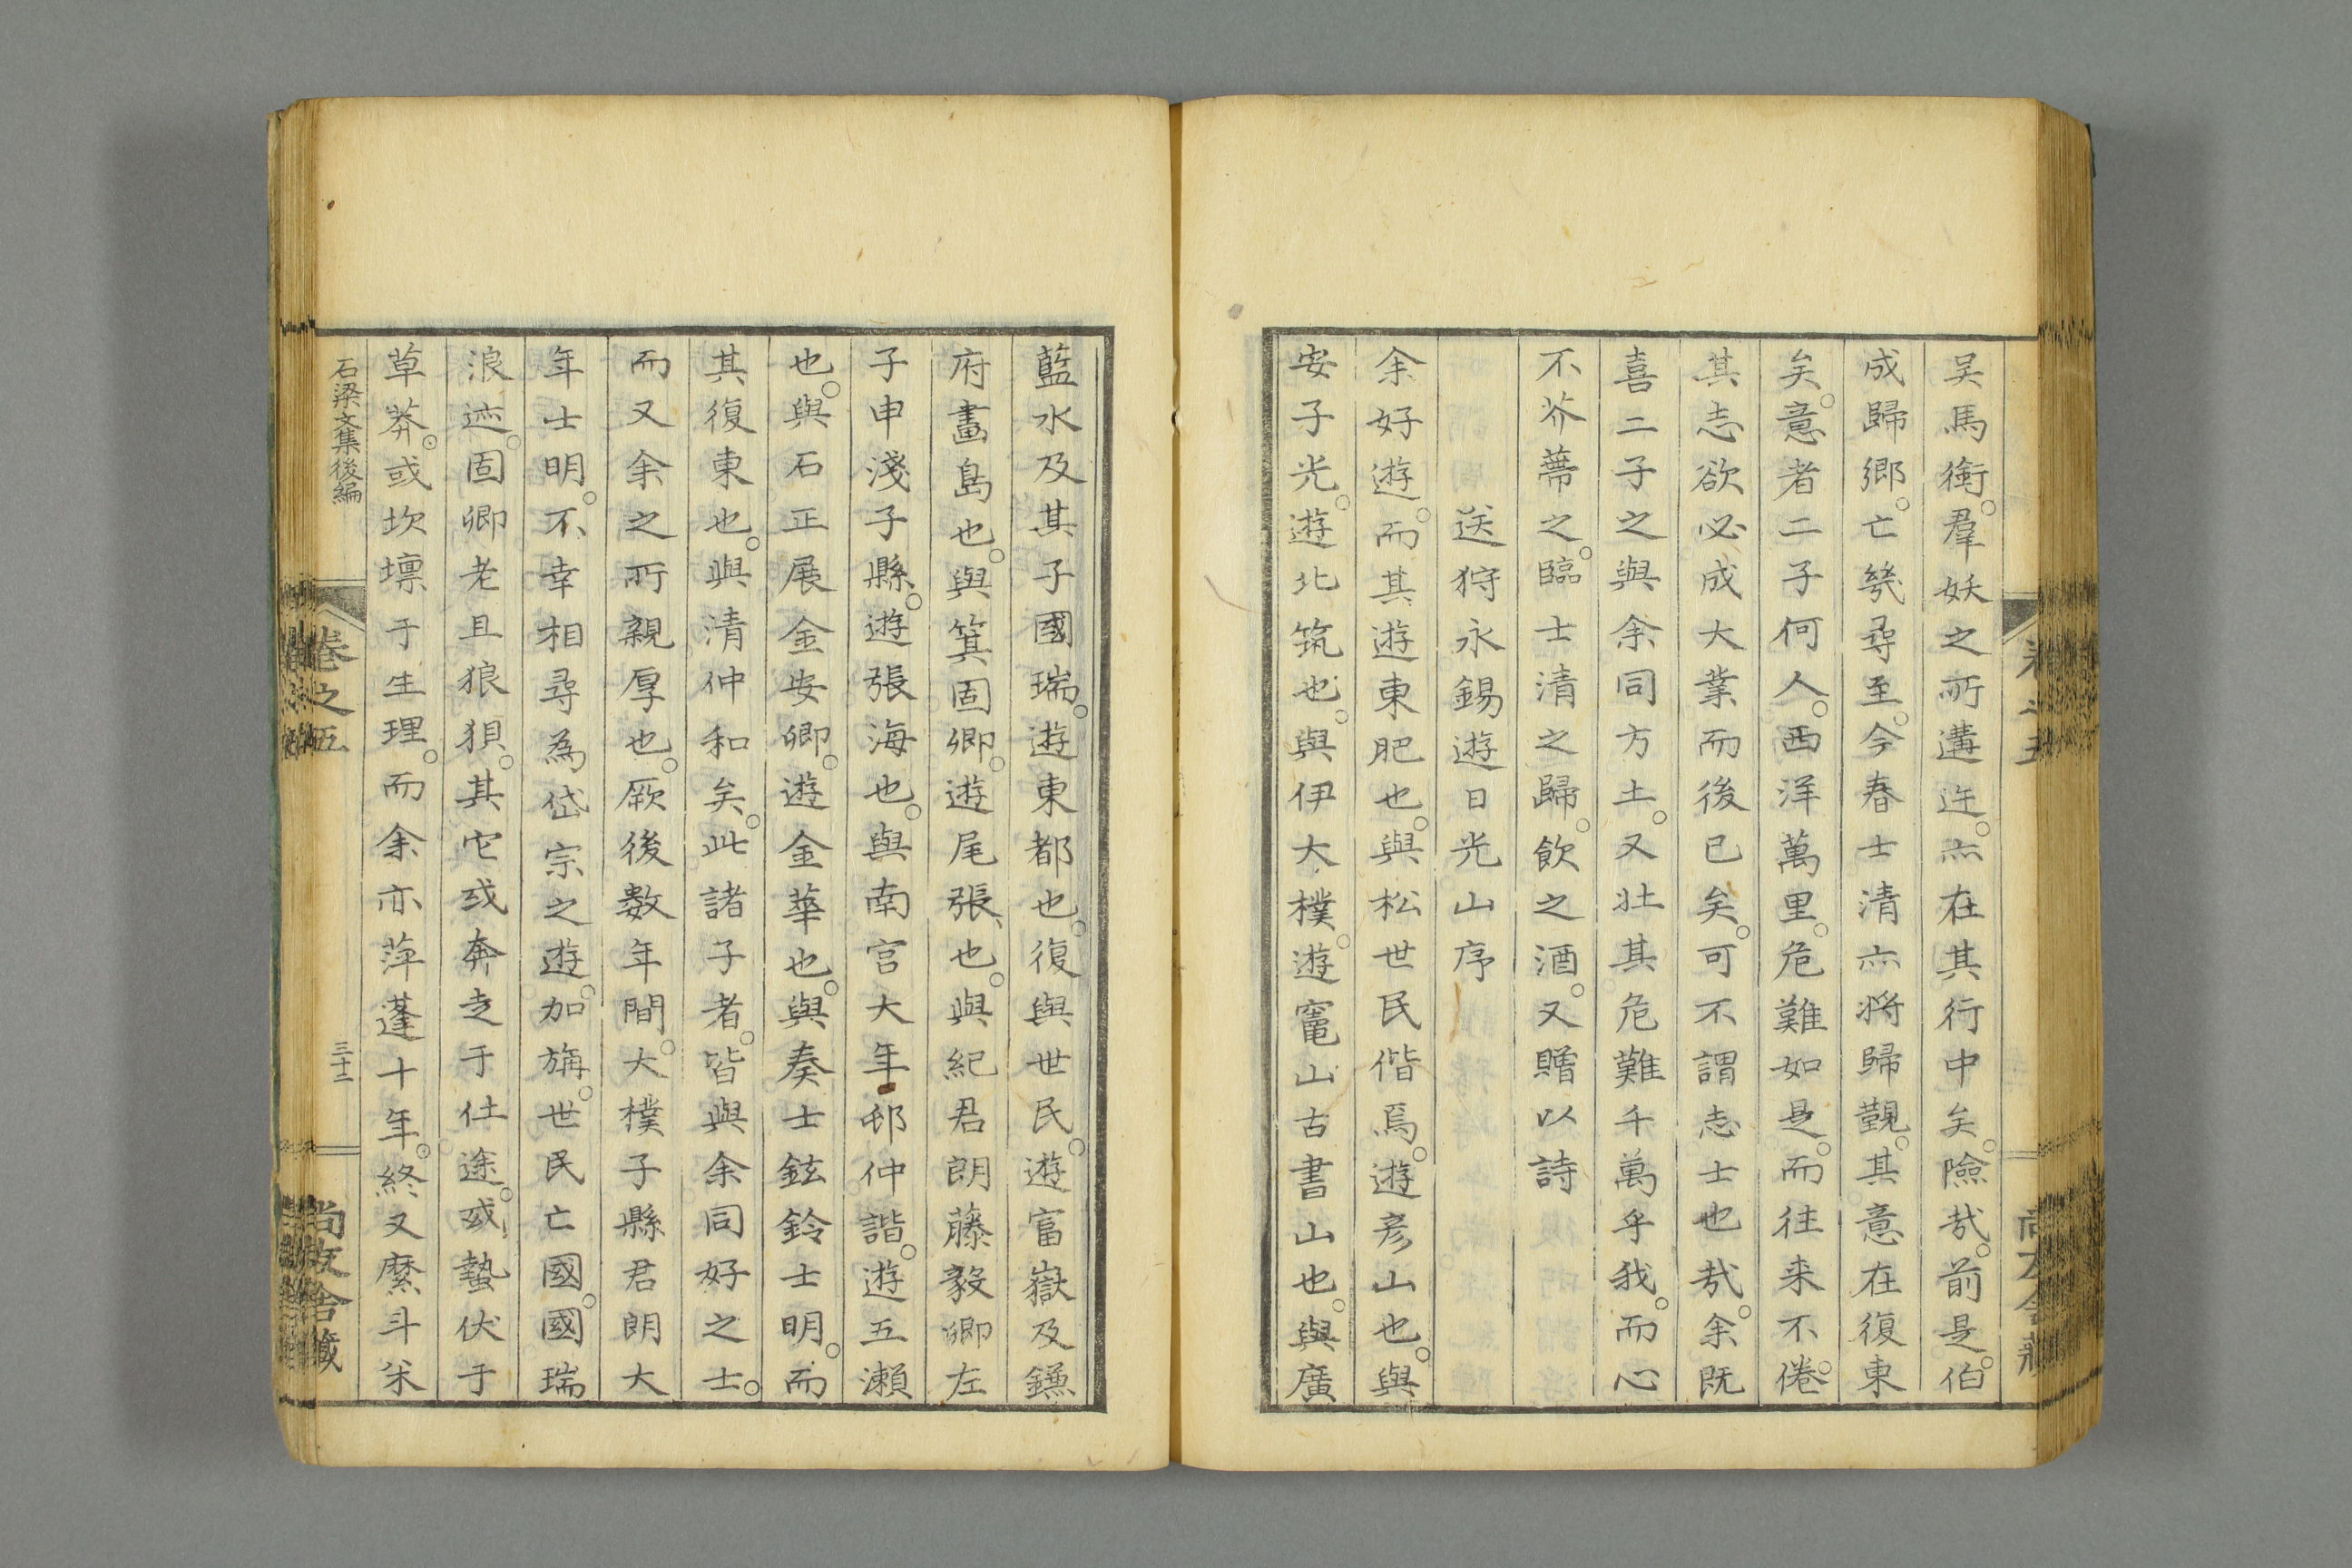 吴馬衝。羣妖之所遘迕。亦在其行中矣。險哉。前是。伯
成歸鄉。亡幾尋至。今春士清亦將歸覲。其意在復東
矣。意者二子何人。西洋萬里。危難如是。而往来不倦。
其志欲必成大業而後已矣。可不謂志士也哉。余既
喜二子之與余同方土。又壮其危難千萬乎我。而心
不芥蔕之。臨士清之歸。飲之酒。又贈以詩
送狩永錫遊日光山序
余好遊。而其遊東肥也。與松世民偕焉。遊彦山也。與
安子光。遊北筑也。與伊大樸。遊竃山古書山也。與廣
藍水及其子國瑞。遊東都也。復與世民。遊富嶽及鐮
府畵島也。與箕固卿。遊尾張也。與紀君朗藤毅卿左
子申淺子縣。遊張海也。與南宫大年邨仲諧。遊五瀬
也。與石正展金安卿。遊金華也。與奏士鉉鈴士明。而
其復東也。與清仲和矣。此諸子者。皆與余同好之士。
而又余之所親厚也。厥後数年間。大樸子縣君朗大
年士明。不幸相尋為岱宗之遊。加旃。世民亡國。國瑞
浪迹。固卿老且狼狽。其它或奔走于仕途。或蟄伏于
草莽。或坎壈于生理。而余亦萍蓬十年。終又縻斗米
石梁文集後編
卷之五
三十二
尚友舎藏